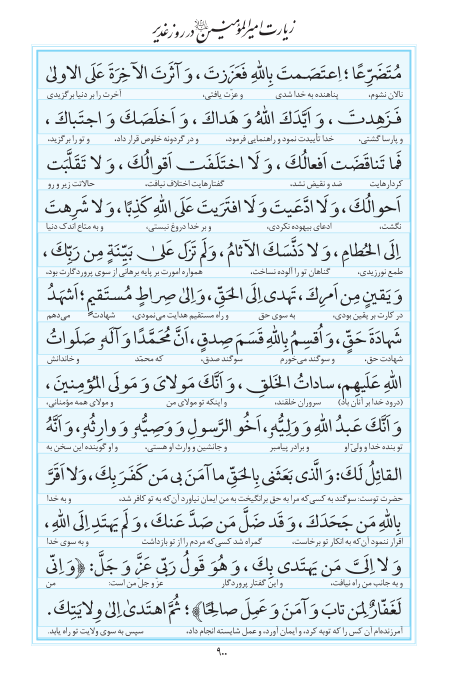 زیارت امیرالمؤمنین علیه السلام در روز غدیر
مُتَضَرِّعًا ؛ اِعتَصَمتَ بِاللهِ فَعَزَزتَ ، وَ آثَرتَ الآخِرَةَ عَلَی الاولیٰ
نالان نشوم، پناهنده به خدا شدی و عزّت یافتی، آخرت را بر دنیا برگزیدی
فَزَهِدتَ ، وَ اَیَّدَكَ اللهُ وَ هَداكَ ، وَ اَخلَصَكَ وَ اجتَباكَ ،
و پارسا گشتی، خدا تأییدت نمود و راهنمایی فرمود، و در گردونه خلوص قرار داد، و تو را برگزید،
فَما تَناقَضَت اَفعالُكَ ، وَ لَا اختَلَفَت اَقوالُكَ ، وَ لا تَقَلَّبَت
کردارهایت ضد و نقیض نشد، گفتارهایت اختلاف نیافت، حالاتت زیر و رو
اَحوالُكَ ، وَ لَا ادَّعَیتَ وَ لَا افتَرَیتَ عَلَی اللهِ کَذِبًا ، وَ لا شَرِهتَ
نگشت، ادعای بیهوده نکردی، و بر خدا دروغ نبستی، و به متاع اندک دنیا
اِلَی الحُطامِ ، وَ لا دَنَّسَكَ الآثامُ ، وَلَم تَزَل عَلیٰ بَیِّنَةٍ مِن رَبِّكَ ،
طمع نورزیدی، گناهان تو را آلوده نساخت، همواره امورت بر پایه برهانی از سوی پروردگارت بود،
وَ یَقینٍ مِن اَمرِكَ ، تَهدی اِلَی الحَقِّ ، وَ اِلیٰ صِراطٍ مُستَقیمٍ ؛ اَشهَدُ
در کارت بر یقین بودی، به سوی حق و راه مستقیم هدایت می‌نمودی، شهادت می‌دهم
شَهادَةَ حَقٍّ ، وَ اُقسِمُ بِاللهِ قَسَمَ صِدقٍ ، اَنَّ مُحَمَّدًا وَ آلَهُ صَلَواتُ
شهادت حق، و سوگند می‌خورم سوگند صدق، که محمّد و خاندانش
اللهِ عَلَیهِم ، ساداتُ الخَلقِ ، وَ اَنَّكَ مَولایَ وَ مَولَی المُؤمِنینَ ،
(درود خدا بر آنان باد) سروران خلقند، و اینکه تو مولای من و مولای همه مؤمنانی،
وَ اَنَّكَ عَبدُ اللهِ وَ وَلِیُّهُ ، اَخُو الرَّسولِ وَ وَصِیُّهُ وَ وارِثُهُ ، وَ اَنَّهُ
تو بنده خدا و ولیّ او و برادر پیامبر و جانشین و وارث او هستی، و او گوینده این سخن به
القائِلُ لَكَ : وَ الَّذی بَعَثَنی بِالحَقِّ ما آمَنَ بی مَن کَفَرَ بِكَ ، وَلا اَقَرَّ
حضرت توست: سوگند به کسی که مرا به حق برانگیخت به من ایمان نیاورد آن‌که به تو کافر شد، و به خدا
بِاللهِ مَن جَحَدَكَ ، وَ قَد ضَلَّ مَن صَدَّ عَنكَ ، وَ لَم یَهتَدِ اِلَی اللهِ ،
اقرار ننمود آن‌که به انکار تو برخاست، گمراه شد کسی که مردم را از تو بازداشت و به سوی خدا
وَ لا اِلَیَّ مَن یَهتَدی بِكَ ، وَ هُوَ قَولُ رَبّی عَزَّ وَ جَلَّ : ﴿وَ اِنّی
و به جانب من راه نیافت، و این گفتار پروردگار عزّ و جل من است: من
لَغَفّارٌ لِمَن تابَ وَ آمَنَ وَ عَمِلَ صالِحًا﴾ ؛ ثُمَّ اهتَدیٰ اِلیٰ وِلایَتِكَ .
آمرزنده‌ام آن کس را که توبه کرد، و ایمان آورد، و عمل شایسته انجام داد، سپس به سوی ولایت تو راه یابد.
۹۰۰